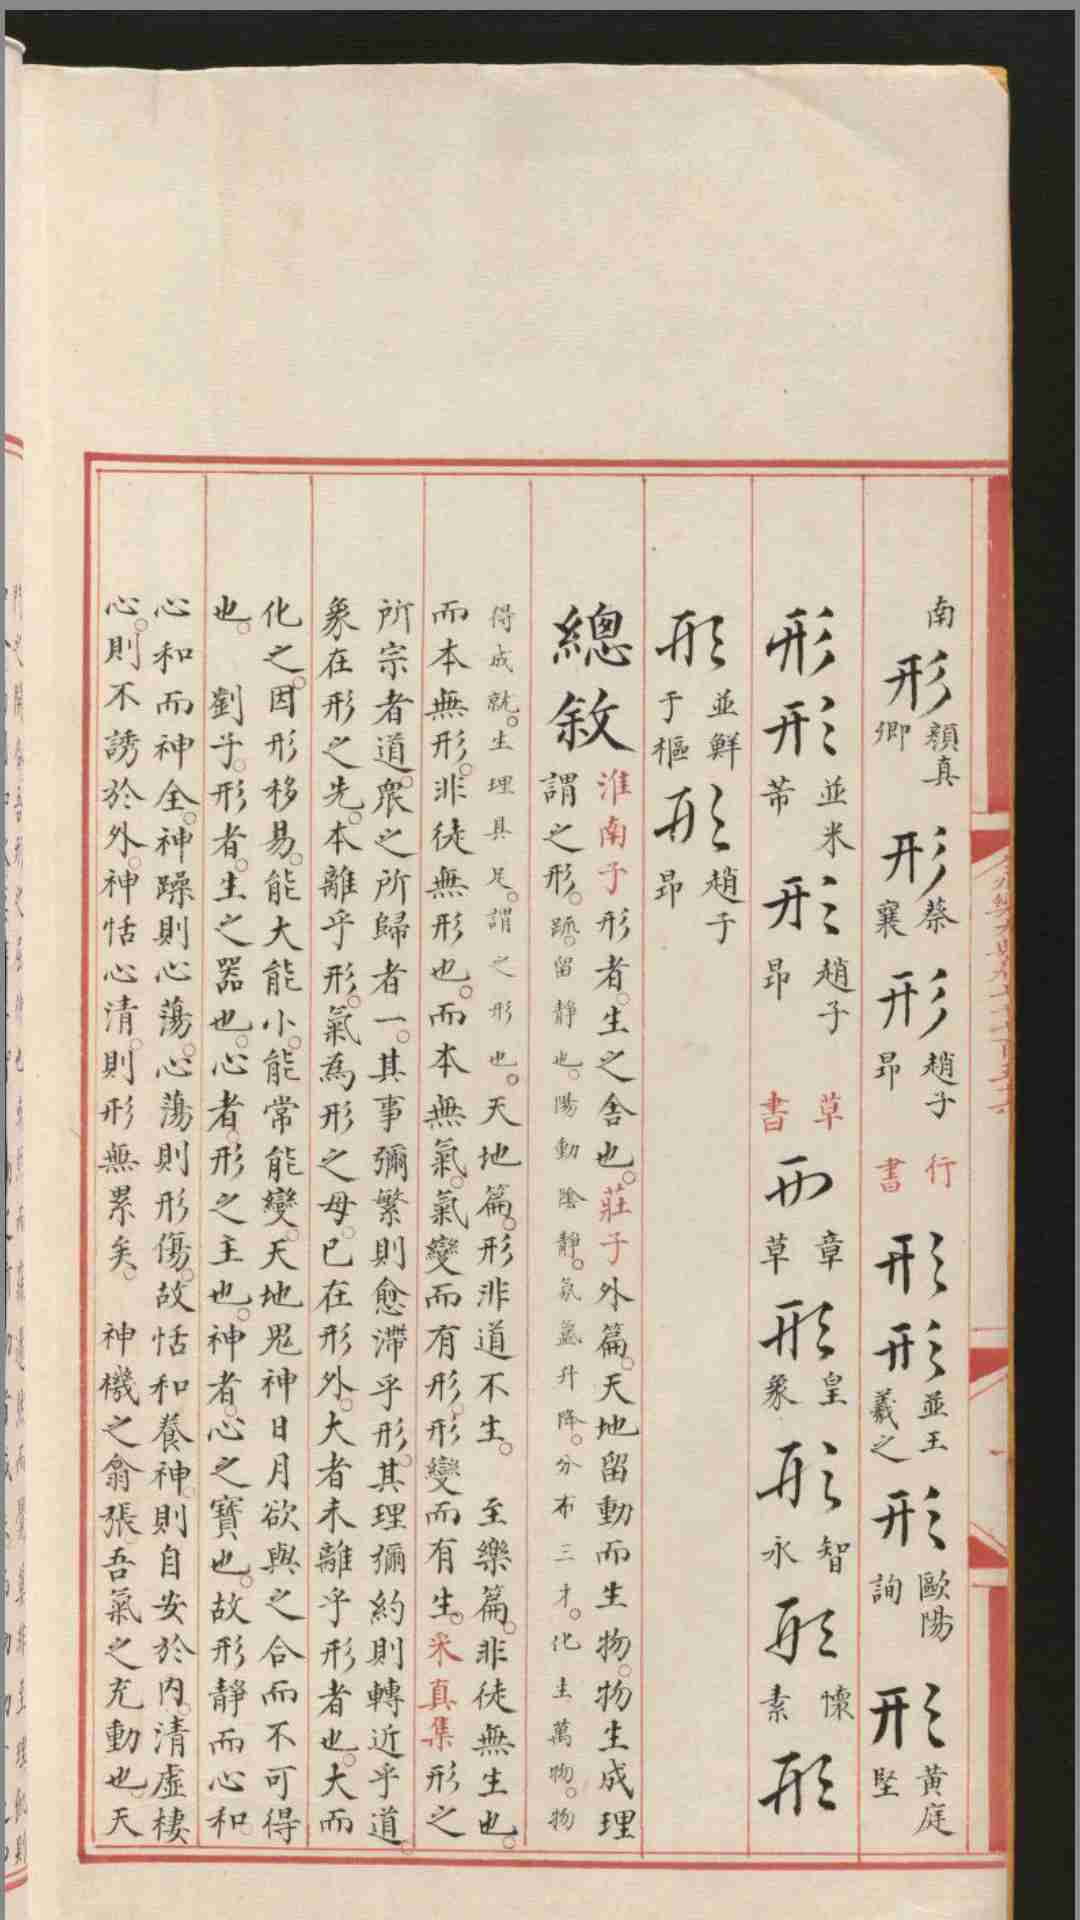 南形顏真卿形蔡襄形趙子昂行書形形並王羲之形歐陽詢形黃庭堅
形形並米芾形趙子昂草書形章草形皇象形智永形懷素形
形並鮮于樞形趙子昂
總敘淮南子形者。生之舍也。莊子外篇。天地留動而生物。物生成理
謂之形。疏。留靜也。陽動陰靜。氛氳升降。分布三才。化生萬物。物
得成就。生理具足。謂之形也。天地篇。形非道不生。 至樂篇。非徒無生也。
而本無形。非徒無形也。而本無氣。氣變而有形。形變而有生。采真集形之
所宗者道。眾之所歸者一。其事彌繁則愈滯乎形。其理彌約則轉近乎道。
象在形之先。本離乎形。氣為形之母。已在形外。大者未離乎形者也。大而
化之。因形移易。能大能小。能常能變。天地鬼神日月欲與之合而不可得
也。 劉子。形者。生之器也。心者。形之主也。神者。心之寶也。故形靜而心和。
心和而神全。神躁則心蕩。心蕩則形傷。故恬和養神。則自安於內。清虛棲
心。則不誘於外。神恬心清。則形無累矣。 神機之翕張。吾氣之充動也。天